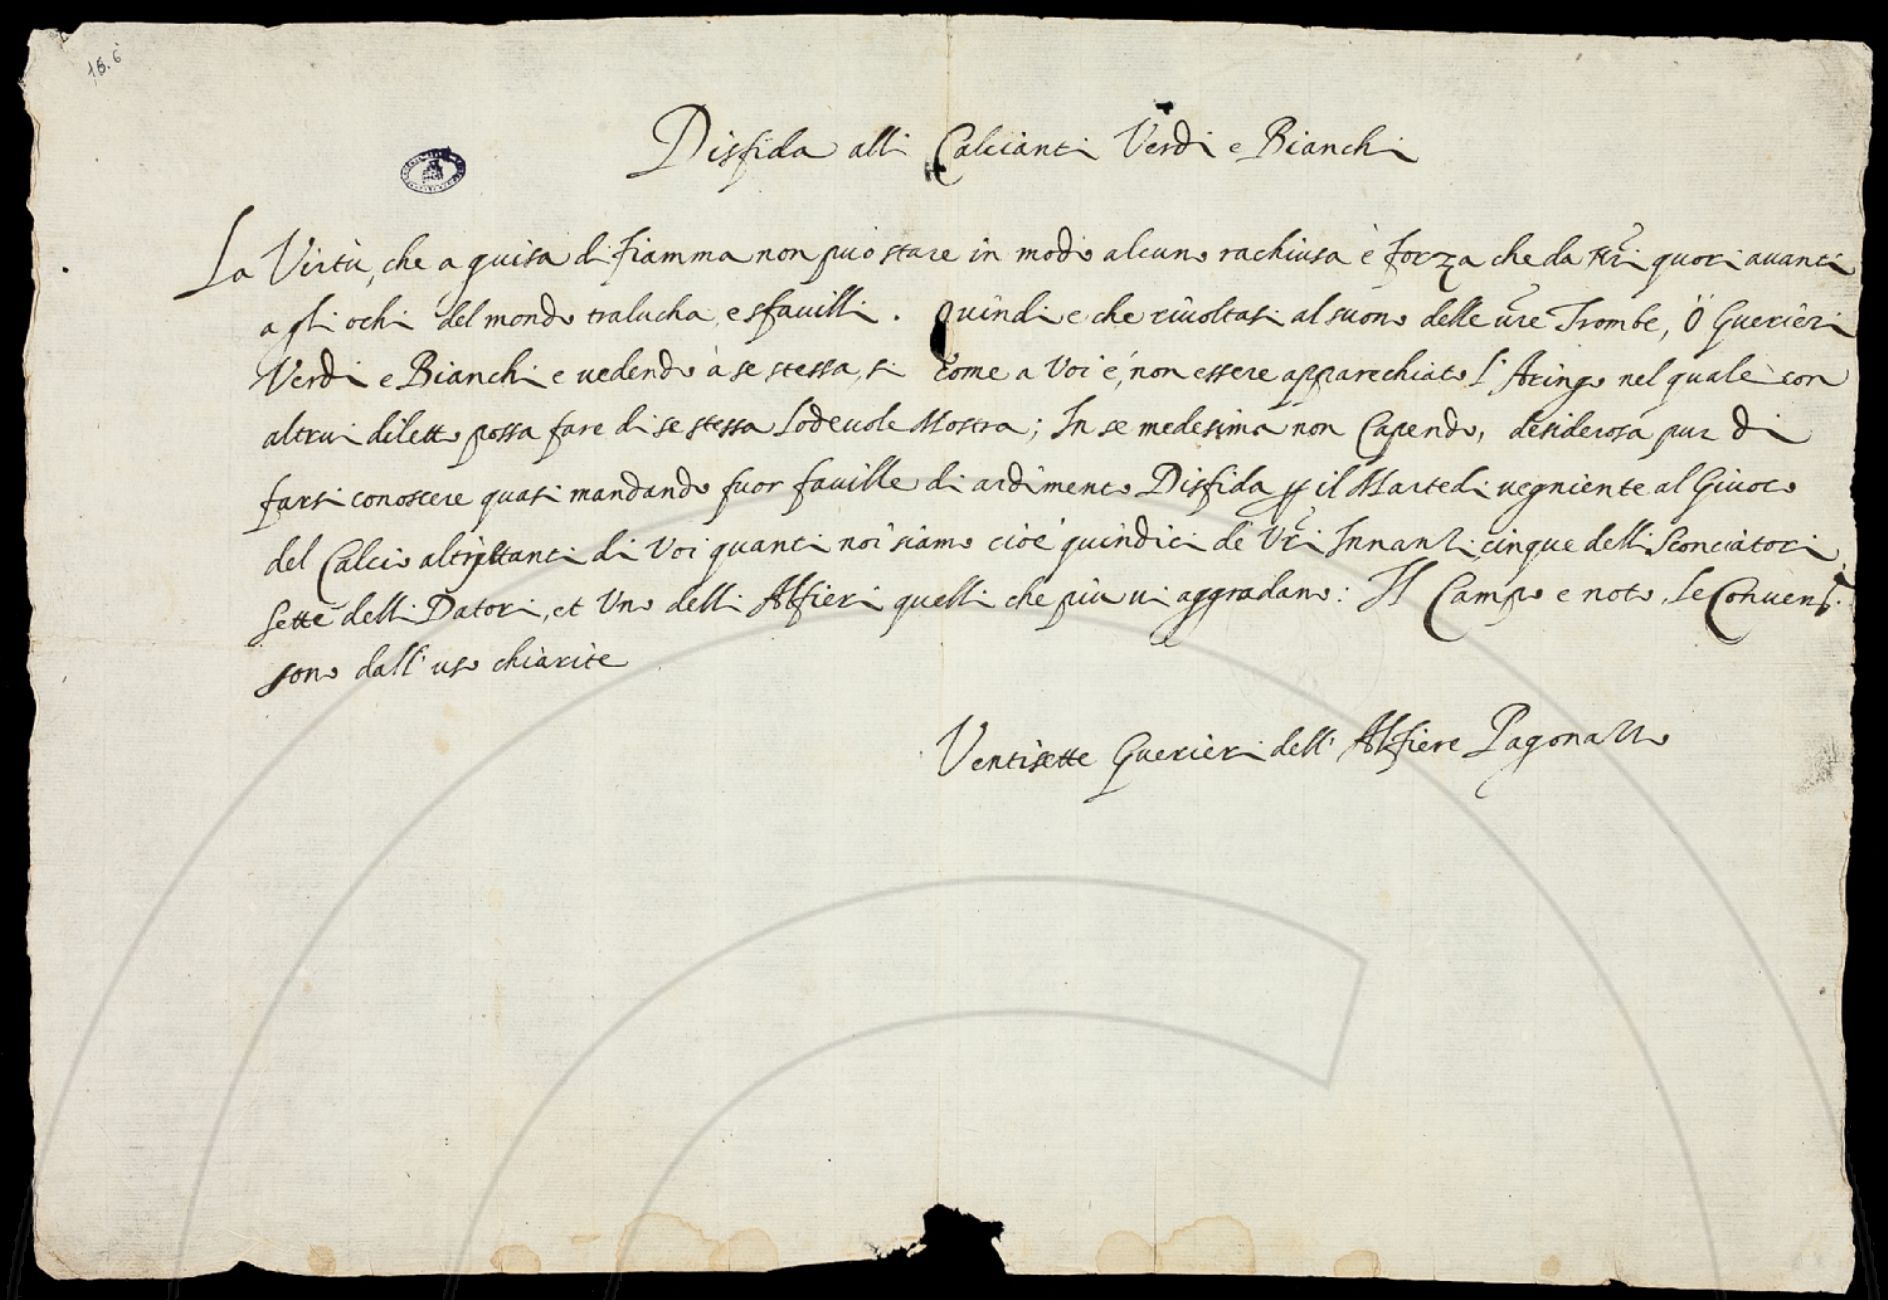 15.6
Disfida alli Calcianti Verdi e Bianchi
La Virtù, che a guisa di fiamma non può stare in modo alcuno rachiusa è forza che da nri quori auanti
agli ochi del mondo tralucha, e sfauilli. Quindi e che riuoltasi al suono delle ure Trombe, Ò Guerieri
Verdi e Bianchi e uedendo à se stessa, si come a Voi é, non essere apparechiato l'Aringo nel quale con
altrui diletto possa fare di se stessa lodeuole Mostra; In se medesima non Capendo, desiderosa pur di
farsi conoscere quasi mandando fuor fauille di ardimento Disfida p il Martedi uegniente al Giuoco
del Calcio altrettanti di Voi quanti noi siamo cioé quindici de Vri Innanzi, cinque delli Sconciatori
sette delli Datori, et Uno delli Alfieri quelli che più ui aggradano: Il Campo e noto, le Conuenz.
sono dall'uso chiarite
Ventisette Guerieri dell'Alfiere Pagonazzo